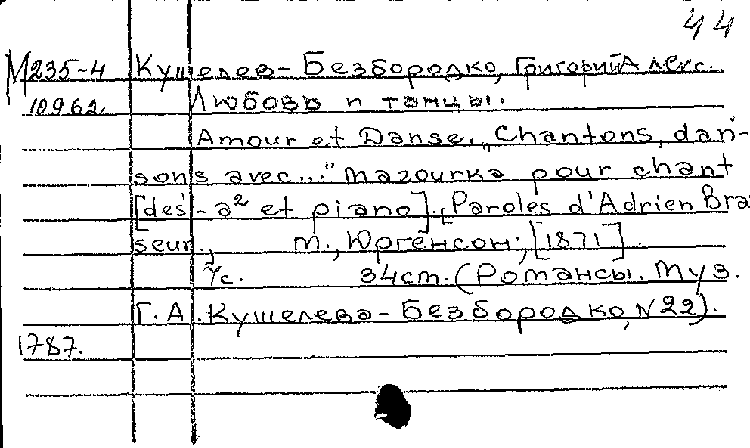 44
М235-4 Кушелев-Безбородко, Григорий Алекс.
10962. Любовь и танцы.
Amour et Danse. „Chantons, dan-
sons avec..." mazourka pour chant
[des'-a² et piano]. [Paroles d'Adrien Bra
seur., М., Юргенсон; [1871]
7с. 34cm. (Романсы. Муз.
Г. А. Кушелева-Безбородко, N22).
1787.